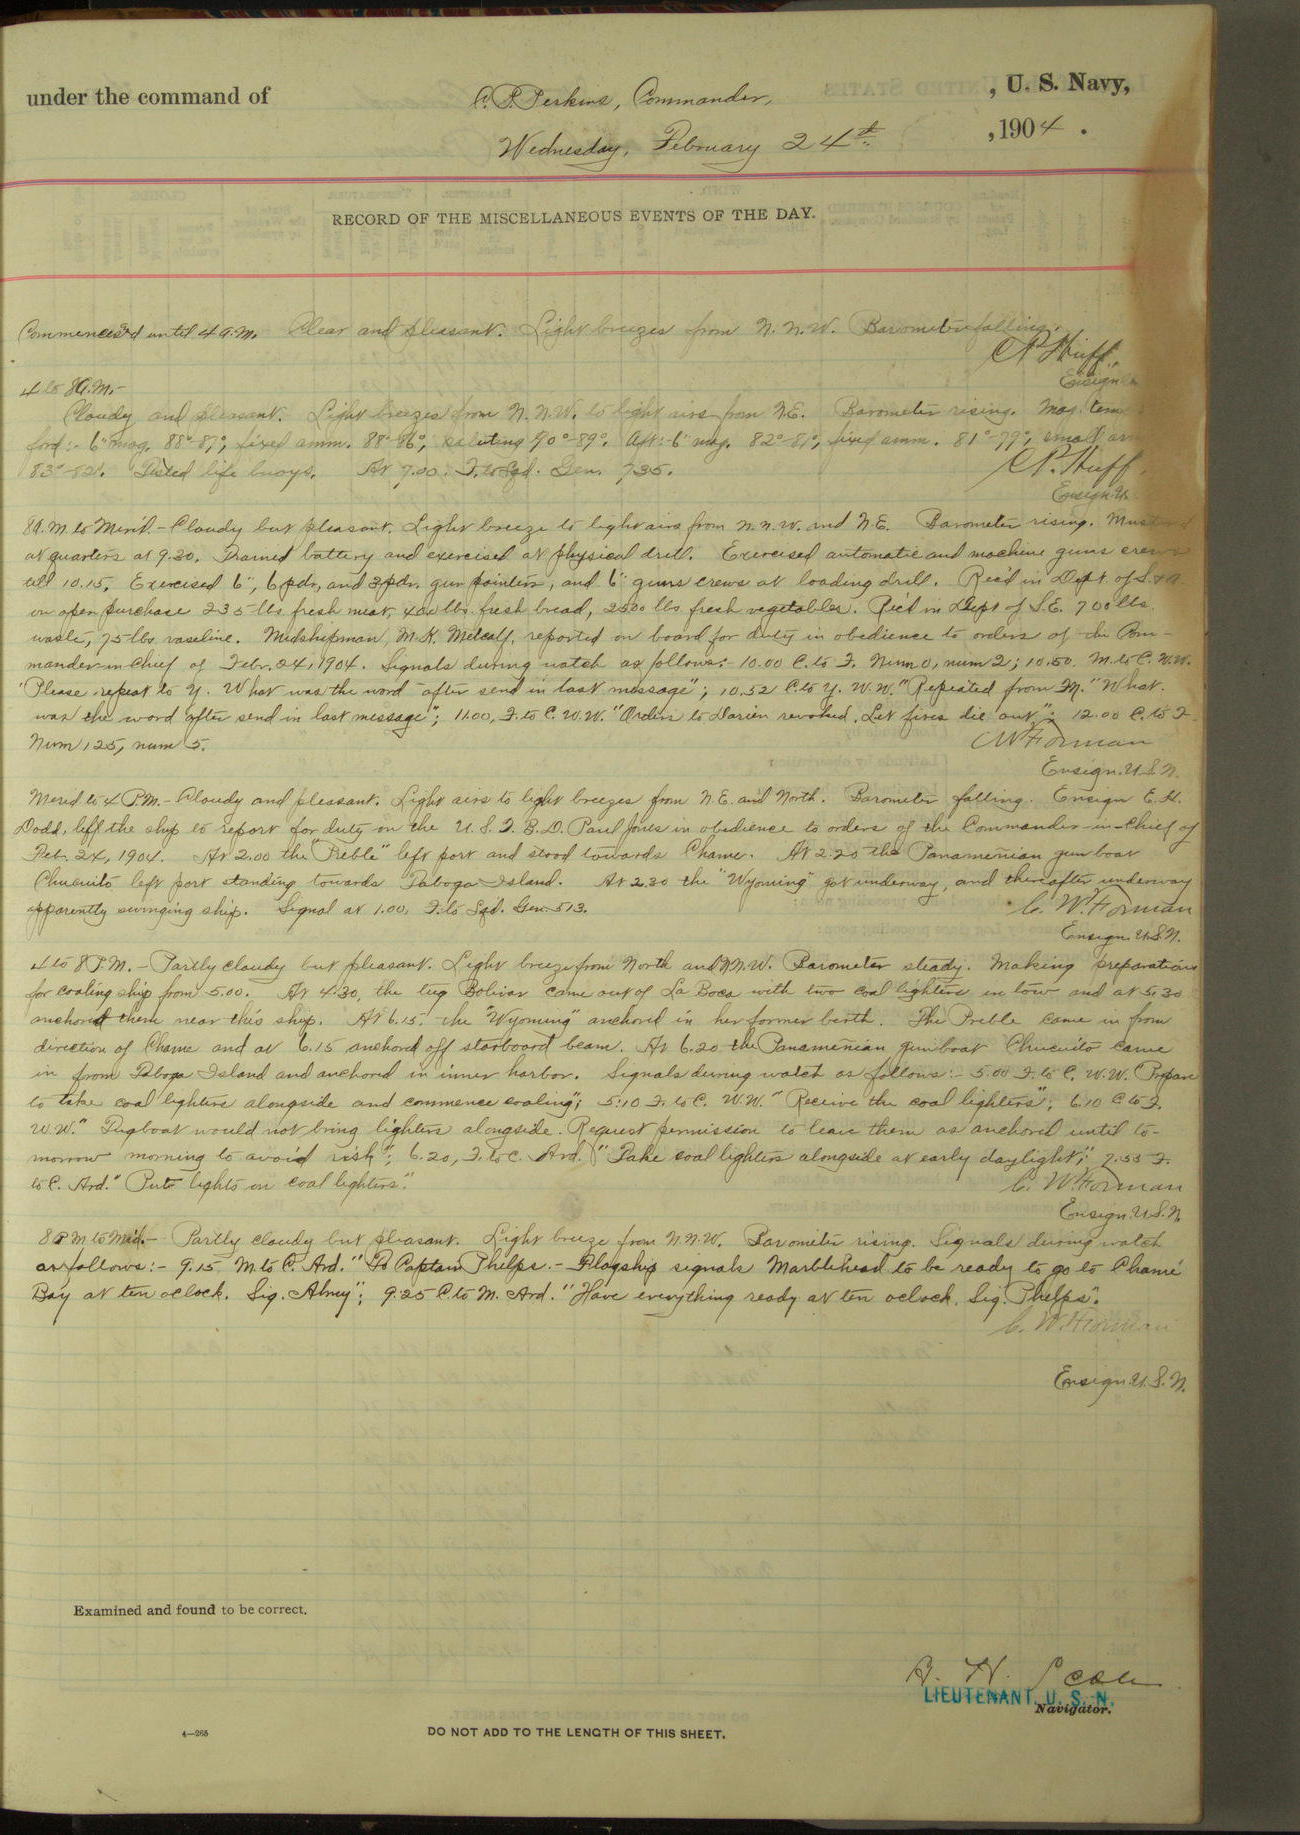 under the command of C. P. Perkins, Commander, , U. S. Navy,
Wednesday, February 24th , 1904 .
RECORD OF THE MISCELLANEOUS EVENTS OF THE DAY.
until 4 a.m. Clear and pleasant. Light breezes from N.N.W. Barometer falling.
C.P. Huff,
Ensign
4 to 8 A.M.-
Cloudy and pleasant. Light breezes from N.N.W. to light airs from N.E. Barometer rising. Mag. tem
ford:- 6" mag. 88°-87°, fixed amm. 88°-86°, saluting 90°-89°. Aft:- 6" mag. 82°-81°, fixed amm. 81°-79°, small arm
83°-82°. Tested life buoys. At 7.20. F. to Sqd. Gen. 735.
C.P. Huff,
Ensign U.
8 A.M. to Merid.- Cloudy but pleasant. Light breeze to light airs from N.N.W. and N.E. Barometer rising. Mustered
at quarters at 9.30. Trained battery and exercised at physical drill. Exercised automatic and machine guns crews
till 10.15. Exercised 6", 6 pdr, and 3 pdr. gun pointers, and 6" guns crews at loading drill. Rec'd in Dept. of S. & A.
on open purchase 235 lbs fresh meat, 400 lbs. fresh bread, 2500 lbs fresh vegetables. Rec'd in Dept of S.E. 700 lbs.
waste, 75 lbs. vaseline. Midshipman, M.K. Metcalf, reported on board for duty in obedience to orders of the Com-
mander-in-Chief of Febr. 24, 1904. Signals during watch as follows:- 10.00 C. to F. Num 0, num 2; 10.50. M. to C. W.W.
"Please repeat to Y. What was the word after send in last message"; 10.52 C. to Y. W.W. "Repeated from M." What
was the word after send in last message"; 11.00, F. to C. W.W. "Orders to Darien revoked. Let fires die out"; 12.00 C. to F.
Num 125, num 5.
C W Forman
Ensign. U.S.N.
Merid to 4 P.M.- Cloudy and pleasant. Light airs to light breezes from N.E. and North. Barometer falling. Ensign E.H.
Dodd, left the ship to report for duty on the U.S.T.B.D. Paul Jones in obedience to orders of the Commander-in-Chief of
Feb. 24, 1904. At 2.00 the "Preble" left port and stood towards Chame. At 2.20 the Panamenian gun boat
Chucuito left port standing towards Taboga Island. At 2.30 the "Wyoming" got underway, and thereafter underway
apparently swinging ship. Signal at 1.00, F. to Sqd. Gen. 513.
C. W. Forman
Ensign. U.S.N.
4 to 8 P.M.- Partly cloudy but pleasant. Light breeze from North and N.N.W. Barometer steady. Making preparations
for coaling ship from 5.00. At 4.30, the tug Bolivar came out of La Boca with two coal lighters in tow and at 5.30
anchored them near this ship. At 6.15. the "Wyoming" anchored in her former berth. The Preble came in from
direction of Chame and at 6.15 anchored off starboard beam. At 6.20 the Panamenian gun boat Chucuito came
in from Taboga Island and anchored in inner harbor. Signals during watch as follows:- 5.00 F. to C. W.W. "Prepare
to take coal lighters alongside and commence coaling"; 5.10 F. to C. W.W. "Receive the coal lighters"; 6.10 C to F.
W.W. "Tugboat would not bring lighters alongside. Request permission to leave them as anchored until to-
morrow morning to avoid risk"; 6.20, F. to C. Ard. "Take coal lighters alongside at early daylight;" 7.55 F.
to C. Ard. "Put lights on coal lighters".
C. W. Forman
Ensign. U.S.N.
8 P M to Mid.- Partly cloudy but pleasant. Light breeze from N.N.W. Barometer rising. Signals during watch
as follows:- 9.15 M. to C. Ard. "To Captain Phelps.- Flagship signals Marblehead to be ready to go to Chamé
Bay at ten oclock. Sig. Almy"; 9.25 C. to M. Ard. "Have everything ready at ten oclock. Sig. Phelps".
C. W. Forman
Ensign U.S.N.
Examined and found to be correct.
LIEUTENANT, U. S. N.
Navigator.
4—265
DO NOT ADD TO THE LENGTH OF THIS SHEET.